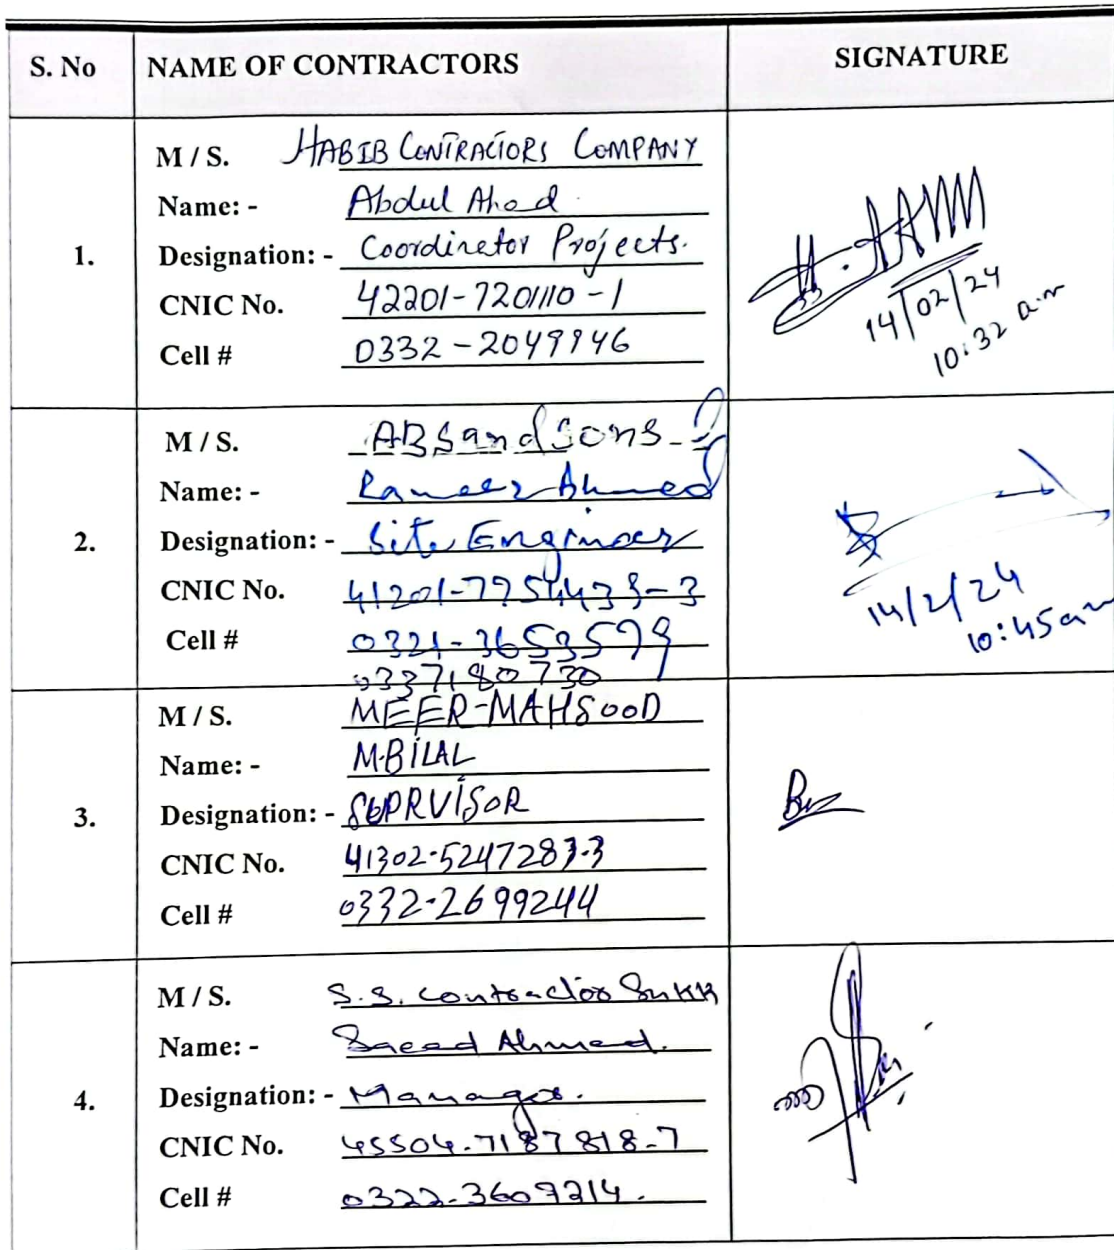 S. No NAME OF CONTRACTORS SIGNATURE
1.
M / S. HABIB CONTRACTORS COMPANY
Name: - Abdul Ahad
Designation: - Coordinator Projects.
CNIC No. 42201-7201110-1
Cell # 0332-2049946
14/02/24
10:32 a.m
2.
M / S. ABS and Sons
Name: - Rameez Ahmed
Designation: - Site Engineer
CNIC No.
Cell # 0321-3653579
0337180730
14/2/24
10:45 am
3.
M / S. MEER-MAHSOOD
Name: - M.BILAL
Designation: - SUPRVISOR
CNIC No. 41302-5247283-3
Cell # 0332-2699244
4.
M / S. S.S. Contractor Sukk
Name: - Saeed Ahmed.
Designation: - Manager.
CNIC No. 45504-7187818-7
Cell #